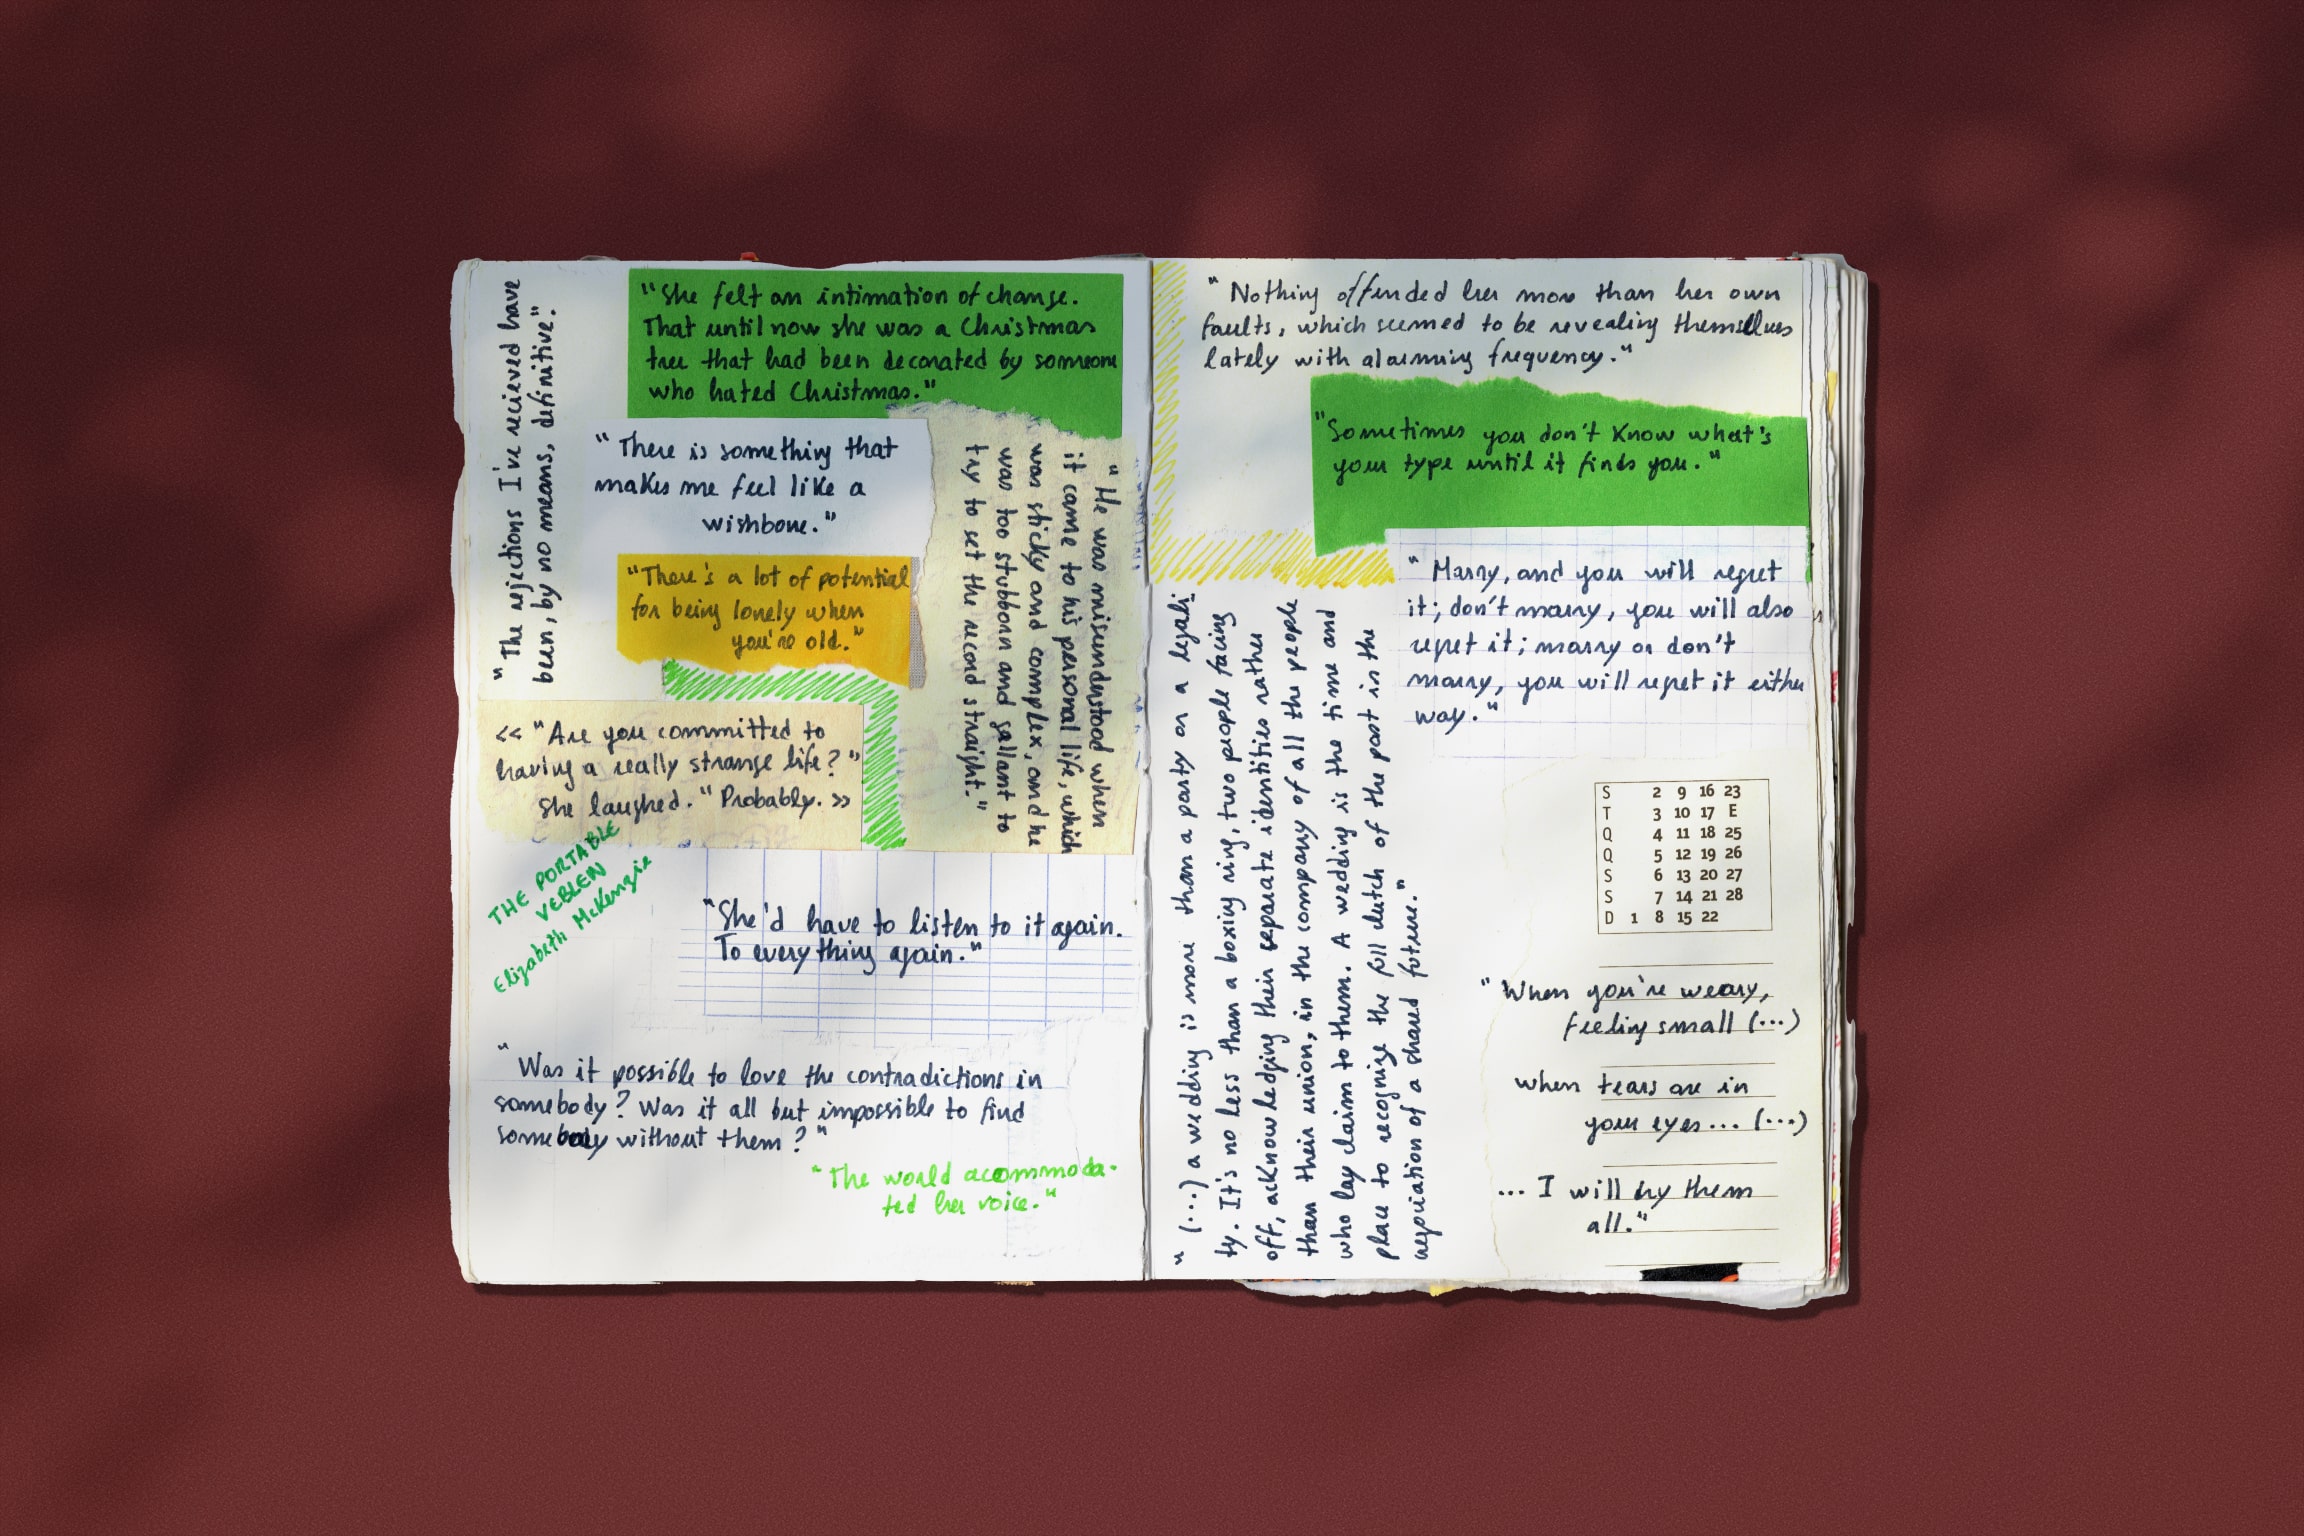 "The rejections I've recieved have
been, by no means, definitive."
"She felt an intimation of change.
That until now she was a Christmas
tree that had been decorated by someone
who hated Christmas."
"There is something that
makes me feel like a
wishbone."
"He was misunderstood when
it came to his personal life, which
was sticky and complex, and he
was too stubborn and gallant to
try to set the record straight."
"There's a lot of potential
for being lonely when
you're old."
<< "Are you committed to
having a really strange life?"
She laughed. "Probably. >>
THE PORTABLE
VEBLEN
Elizabeth McKenzie
"She'd have to listen to it again.
To everything again."
"Was it possible to love the contradictions in
somebody? Was it all but impossible to find
somebody without them?"
"The world accommoda-
ted her voice."
"Nothing offended her more than her own
faults, which seemed to be revealing themselves
lately with alarming frequency."
"Sometimes you don't know what's
your type until it finds you."
"Marry, and you will regret
it; don't marry, you will also
regret it; marry or don't
marry, you will regret it either
way."
"(...) a wedding is more than a party or a legali-
ty. It's no less than a boxing ring, two people facing
off, acknowledging their separate identities rather
than their union, in the company of all the people
who lay claim to them. A wedding is the time and
place to recognize the full clutch of the past in the
negociation of a shared future."
S 2 9 16 23
T 3 10 17 E
Q 4 11 18 25
Q 5 12 19 26
S 6 13 20 27
S 7 14 21 28
D 1 8 15 22
"When you're weary,
feeling small (...)
when tears are in
your eyes... (...)
... I will dry them
all."